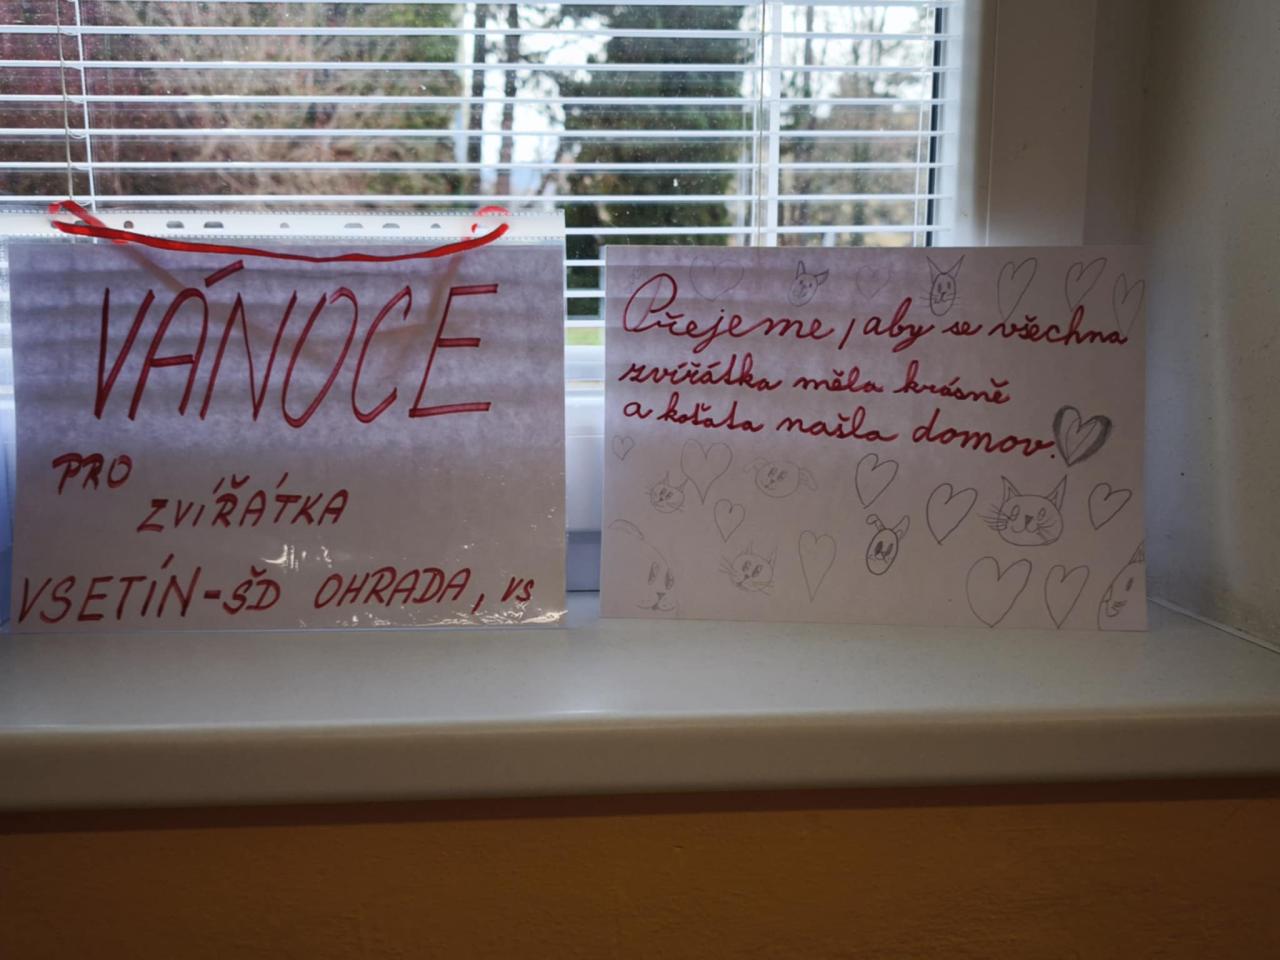 VÁNOCE
PRO
ZVÍŘÁTKA
VSETÍN-ŠD OHRADA, VS
Přejeme, aby se všechna
zvířátka měla krásně
a koťata našla domov.